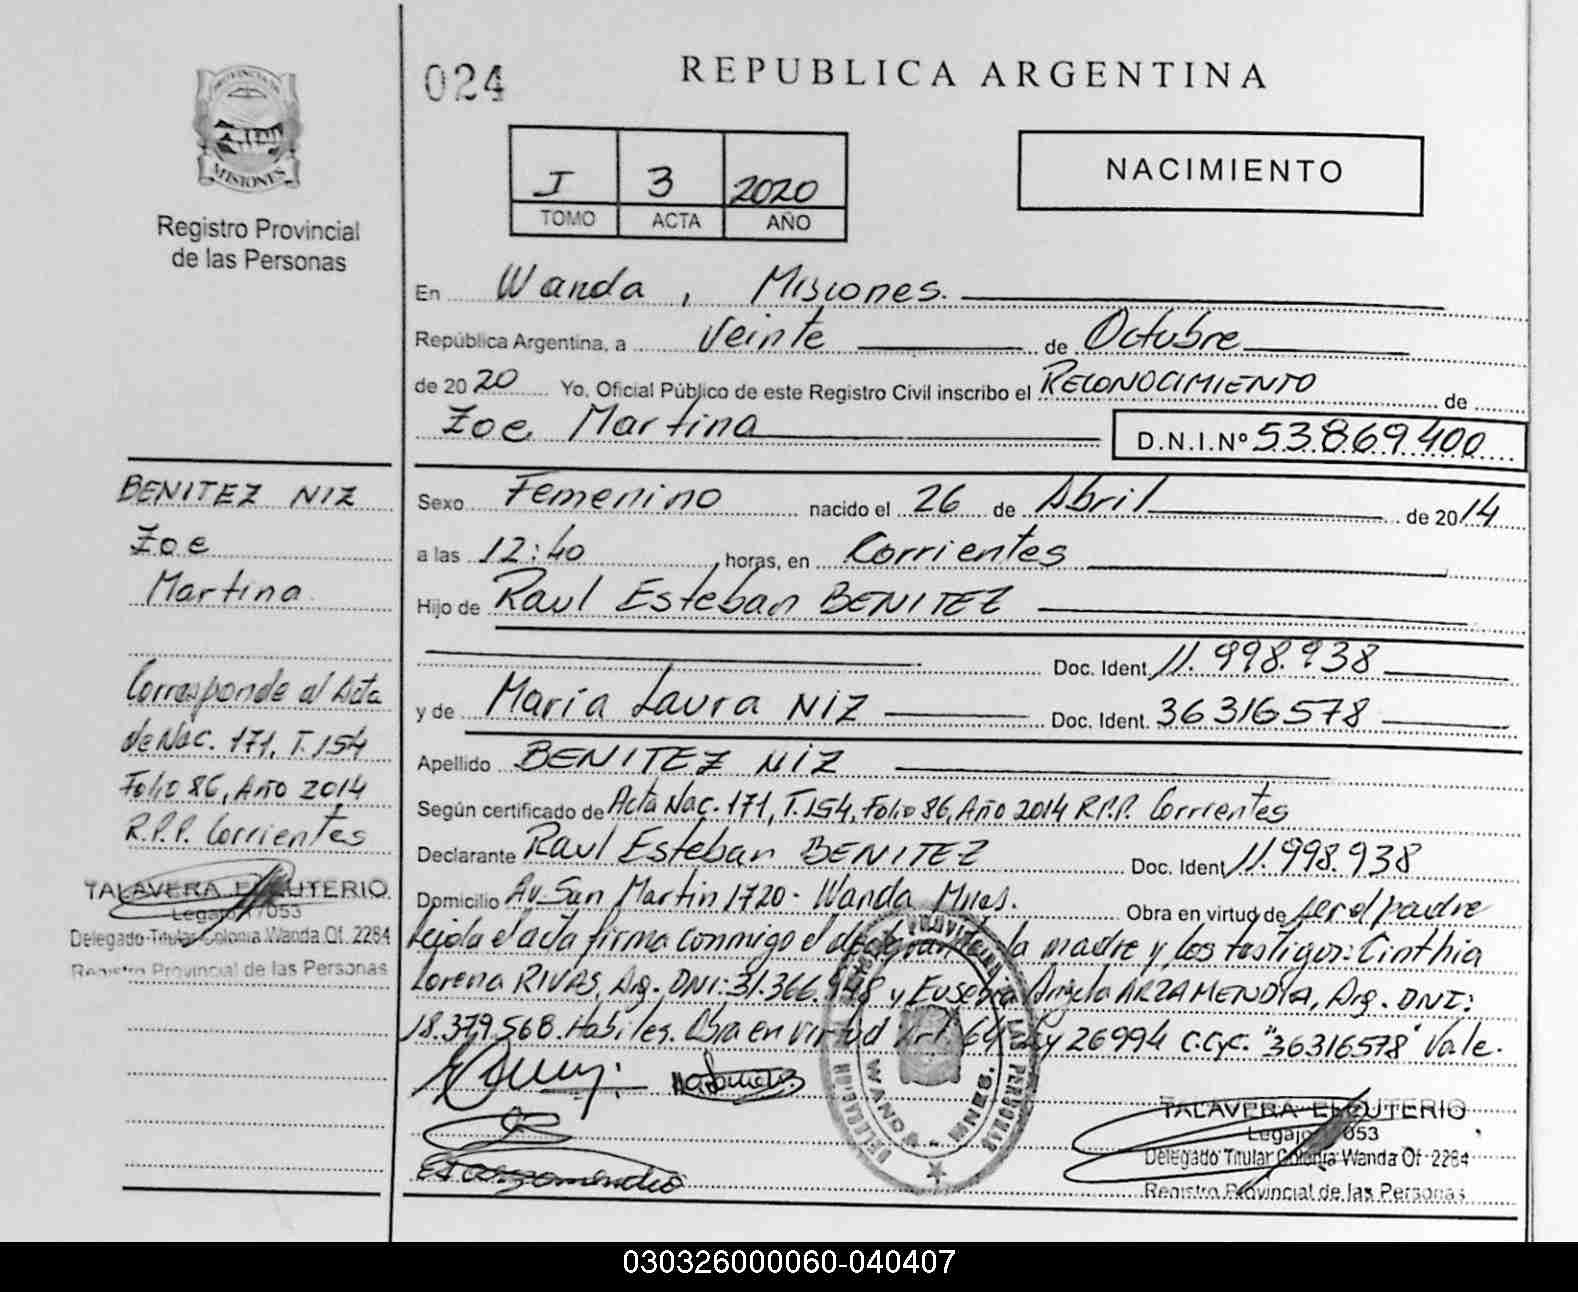 024
REPUBLICA ARGENTINA
PROVINCIA DE
MISIONES
Registro Provincial
de las Personas
I 3 2020
TOMO ACTA AÑO
NACIMIENTO
En Wanda, Misiones.
República Argentina, a Veinte de Octubre
de 2020 Yo, Oficial Público de este Registro Civil inscribo el RECONOCIMIENTO de
Zoe Martina D.N.I.Nº 53.869.400
Sexo Femenino nacido el 26 de Abril de 2014
a las 12:40 horas, en Corrientes
Hijo de Raul Esteban BENITEZ
Doc. Ident. 11.998.938
y de María Laura NIZ Doc. Ident. 36316578
Apellido BENITEZ NIZ
Según certificado de Acta Nac. 171, T.154, Folio 86, Año 2014 R.P.P. Corrientes
Declarante Raul Esteban BENITEZ Doc. Ident 11.998.938
Domicilio Av. San Martin 1720 - Wanda Mnes. Obra en virtud de ser el padre
Leída el acta firma conmigo el declarante, la madre y los testigos: Cinthia
Lorena RIVAS, Arg. DNI: 31.366.948 y Eusebia Angela ARZAMENDIA, Arg. DNI:
18.379.568. Habiles. Obra en virtud Art. 64 Ley 26994 C.C.yC. "36316578" Vale.
BENITEZ NIZ
Zoe
Martina
Corresponde al Acta
de Nac. 171, T.154
Folio 86, Año 2014
R.P.P. Corrientes
TALAVERA ELEUTERIO
Legajo 7053
Delegado Titular Colonia Wanda Of. 2264
Registro Provincial de las Personas
WANDA - MNES.
TALAVERA ELEUTERIO
Legajo 7053
Delegado Titular Colonia Wanda Of. 2264
Registro Provincial de las Personas
030326000060-040407